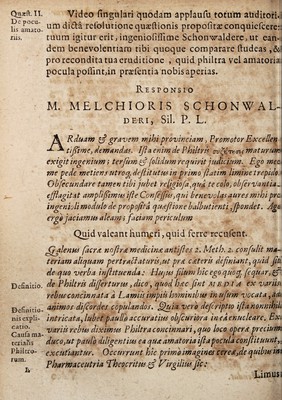 Quæst. II.
De pocu-
lis amato-
riis.
Video singulari quodam applausu totum auditori-
um dictâ resolutione quæstionis propositæ conquiescere:
tuum igitur erit, ingeniosissime Schonwaldere, ut ean-
dem benevolentiam tibi quoque comparare studeas, &
pro recondita tua eruditione, quid philtra vel amatoria
pocula possint, in præsentia nobis aperias.
RESPONSIO
M. MELCHIORIS SCHONWAL-
DERI, Sil. P. L.
ARduam & gravem mihi provinciam, Promotor Excellen-
tissime, demandas. Ista enim de Philtris matur
exigit ingenium; tersum & solidum requirit judicium. Ego me
me pede metiens utroq; destitutus in primo statim limine trepido
Obsecundare tamen tibi jubet religiosa, quâ te colo, observantia.
efflagitat amplissimus iste Consessus, qui benevolas aures mihi pro
ingenij modulo de proposita quæstione balbutienti, spondet. Age
ergò jaciamus aleam: faciam periculum
Quid valeant humeri, quid ferre recusent.
Galenus sacræ nostræ medicinæ antistes 2. Meth. 2. consulit ma-
teriam aliquam pertractaturo, ut præ cæteris definiant, quid sit
de quo verba instituenda. Hujus filum hic ego quoq; sequar, &
de Philtris disserturus, dico, quòd hæc sint MEDIA ex variis
rebus concinnata à Lamiis impiis hominibus in usum vocata, ad
animos discordes copulandos. Quia verò descriptio ista nonnihil
intricata, lubet paullo accuratius obscuriora inea enucleare. Ex
variis rebus diximus Philtra concinnari, quo loco operæ precium
duco, ut paullò diligentius ea quæ amatoria ista pocula constituunt,
excutiantur. Occurrunt hic primò imagines cereæ, de quibus in
Pharmaceutria Theocritus & Virgilius sic:
Definitio.
Definitio-
nis expli-
catio.
Causa ma-
terialis
Philtro-
rum.
1.
Limus